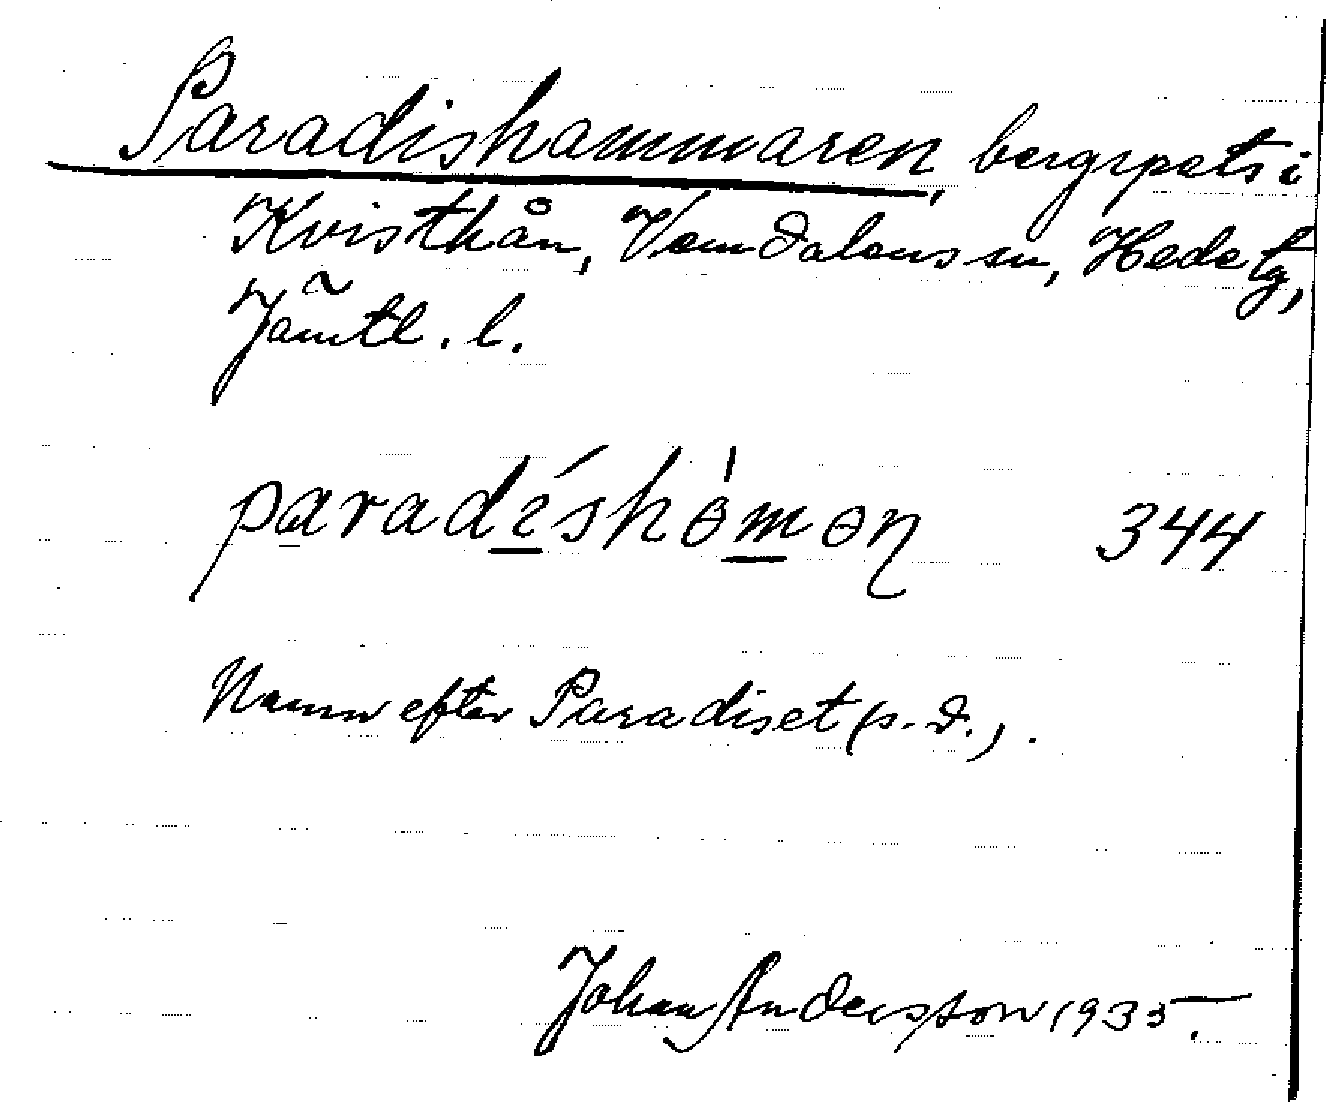 Paradishammaren, bergspets i
Kvisthån, Vemdalens sn, Hede tg,
Jämtl. l.
paradíshòmɵn 344
Namn efter Paradiset (s. d.).
Johan Andersson 1935.